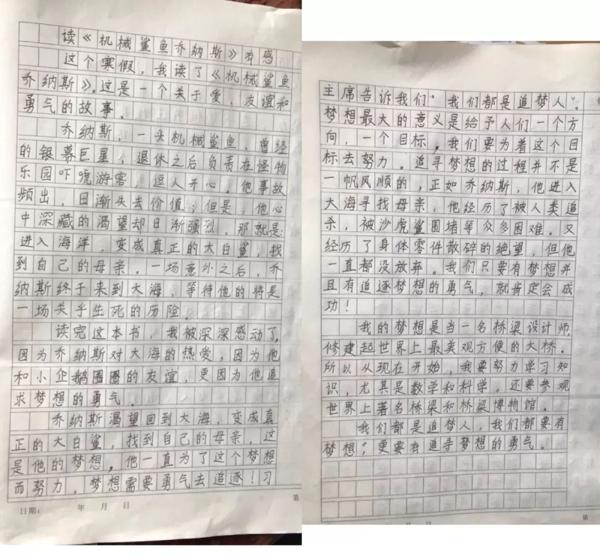 读《机械鲨鱼乔纳斯》有感
这个寒假，我读了《机械鲨鱼
乔纳斯》。这是一个关于爱，友谊和
勇气的故事。
乔纳斯，一头机械鲨鱼，曾经
的银幕巨星，退休之后负责在怪物
乐园吓唬游客，逗人开心。他事故
频出，日渐失去价值；但是，他心
中深藏的渴望却日渐强烈，那就是：
进入海洋，变成真正的大白鲨，找
到自己的母亲。一场意外之后，乔
纳斯终于来到大海，等待他的将是
一场关乎生死的历险。
读完这本书，我被深深感动了。
因为乔纳斯对大海的热爱，因为他
和小企鹅圈圈的友谊，更因为他追
求梦想的勇气。
乔纳斯渴望回到大海，变成真
正的大白鲨，找到自己的母亲，这
是他的梦想。他一直为了这个梦想
而努力，梦想需要勇气去追逐！习
日期： 年 月 日 第
主席告诉我们“我们都是追梦人”。
梦想最大的意义是给予人们一个方
向，一个目标。我们要为着这个目
标去努力。追寻梦想的过程并不是
一帆风顺的，正如乔纳斯，他进入
大海寻找母亲，他经历了被人类追
杀，被沙虎鲨围堵等众多困难，又
经历了身体零件散碎的绝望，但他
一直都没放弃。我们只要有梦想并
且有追逐梦想的勇气，就肯定会成
功！
我的梦想是当一名桥梁设计师，
修建起世界上最美观方便的大桥。
所以从现在开始，我要努力学习知
识，尤其是数学和科学，还要参观
世界上著名桥梁和桥梁博物馆。
我们都是追梦人，我们都要有
梦想，更要有追寻梦想的勇气。
年 月 日 第